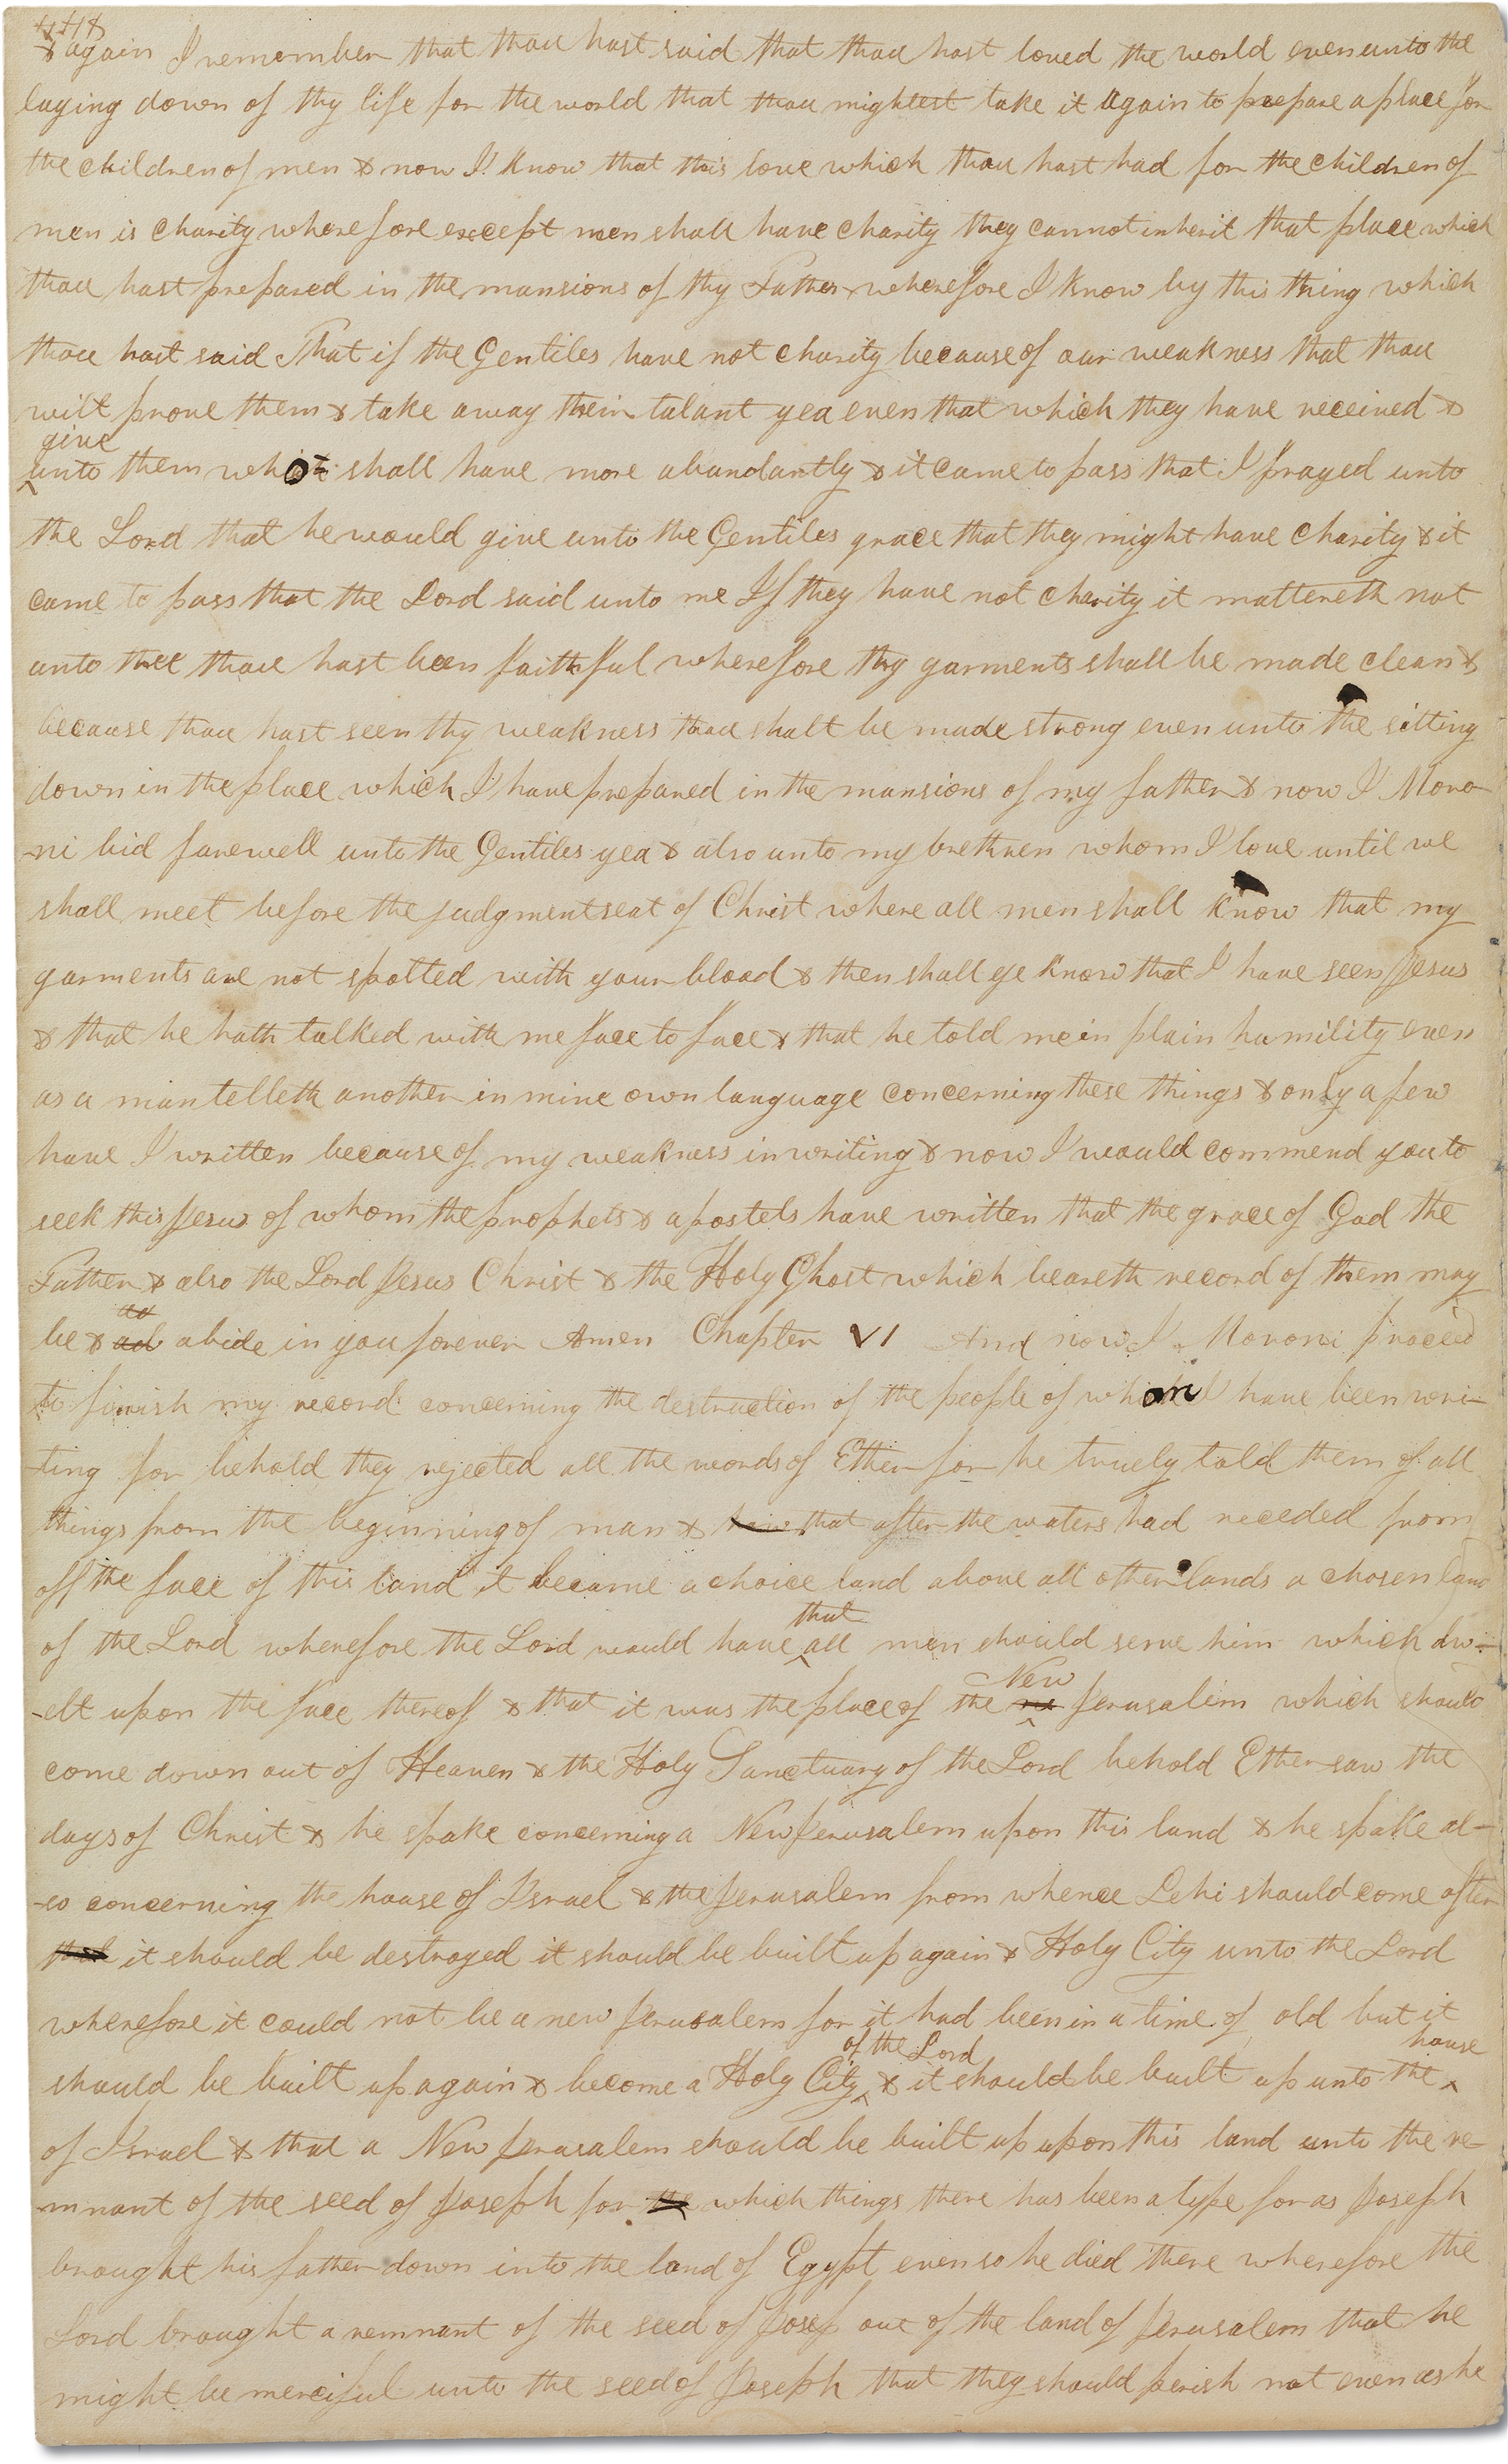 & again I remember that thou hast said that thou hast loved the world even unto the
laying down of thy life for the world that thou mightest take it again to prepare a place for
the children of men & now I know that this love which thou hast had for the children of
men is charity wherefore except men shall have charity they cannot inherit that place which
thou hast prepared in the mansions of thy Father wherefore I know by this thing which
thou hast said That if the Gentiles have not charity because of our weakness that thou
wilt prove them & take away their talant yea even that which they have received &
give
unto them who shall have more abundantly & it came to pass that I prayed unto
the Lord that he would give unto the Gentiles grace that they might have charity & it
came to pass that the Lord said unto me If they have not charity it mattereth not
unto thee thou hast been faithful wherefore thy garments shall be made clean &
because thou hast seen thy weakness thou shalt be made strong even unto the sitting
down in the place which I have prepared in the mansions of my father & now I Moro
-ni bid farewell unto the Gentiles yea & also unto my brethren whom I love until we
shall meet before the judgment seat of Christ where all men shall know that my
garments are not spotted with your blood & then shall ye know that I have seen Jesus
& that he hath talked with me face to face & that he told me in plain humility even
as a man telleth another in mine own language concerning these things & only a few
have I written because of my weakness in writing & now I would commend you to
seek this Jesus of whom the prophets & apostels have written that the grace of God the
Father & also the Lord Jesus Christ & the Holy Ghost which beareth record of them may
be & abide in you forever Amen Chapter VI And now I Moroni proceed
to finish my record concerning the destruction of the people of whom I have been wri-
-ting for behold they rejected all the words of Ether for he truely told them of all
things from the beginning of man & that after the waters had receded from
off the face of this land it became a choice land above all other lands a chosen land
that
of the Lord wherefore the Lord would have all men should serve him which dw-
New
-elt upon the face thereof & that it was the place of the Jerusalem which should
come down out of Heaven & the Holy Sanctuary of the Lord behold Ether saw the
days of Christ & he spake concerning a New Jerusalem upon this land & he spake al-
-so concerning the house of Israel & the Jerusalem from whence Lehi should come after
it should be destroyed it should be built up again & Holy City unto the Lord
wherefore it could not be a new Jerusalem for it had been in a time of old but it
of the Lord house
should be built up again & become a Holy City & it should be built up unto the
of Israel & that a New Jerusalem should be built up upon this land unto the re-
-mnant of the seed of Joseph for which things there has been a type for as Joseph
brought his father down into the land of Egypt even so he died there wherefore the
Lord brought a remnant of the seed of Josep out of the land of Jerusalem that he
might be merciful unto the seed of Joseph that they should perish not even as he